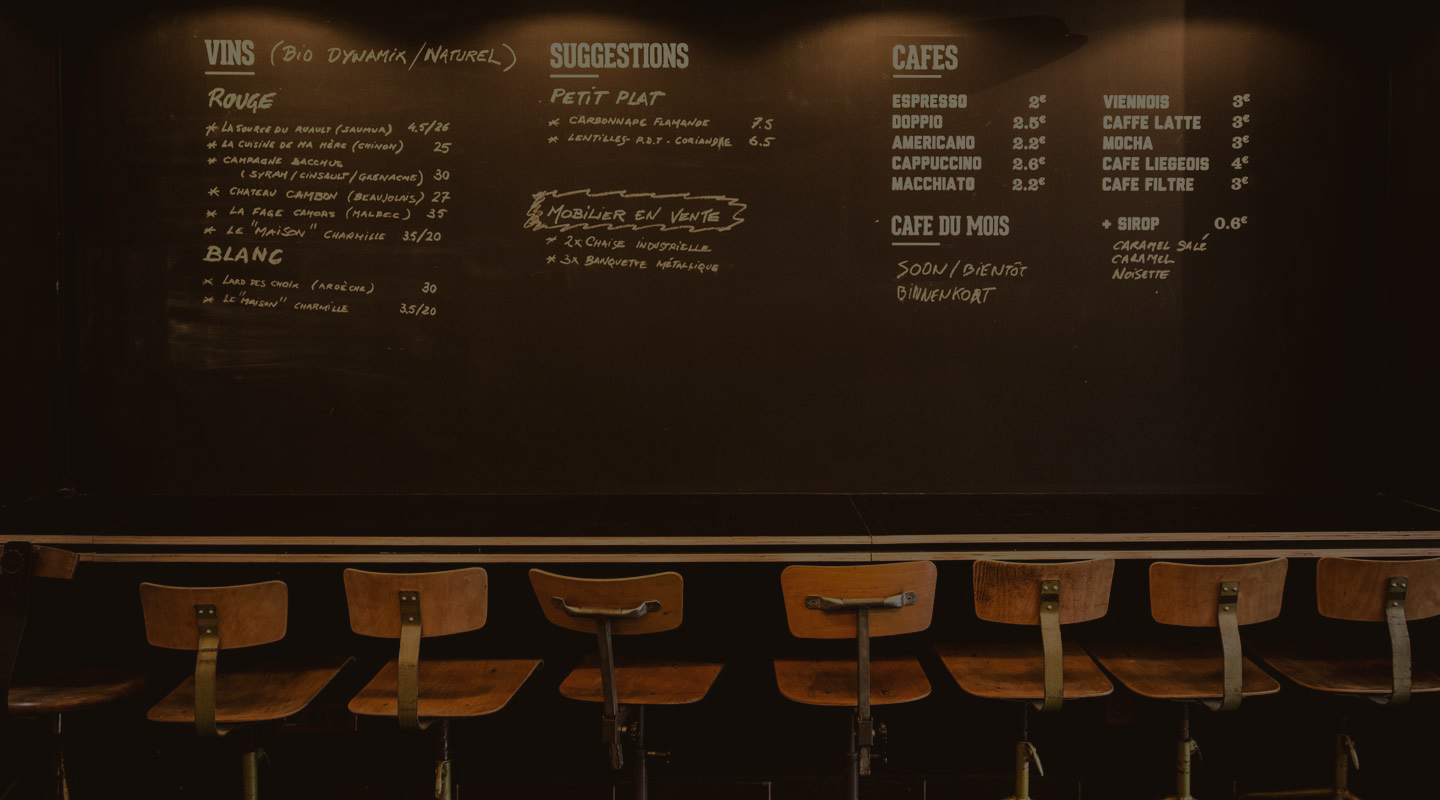 VINS (BIO DYNAMIX/NATUREL)
ROUGE
* LA SOURCE DU RUAULT (SAUMUR) 4.5/26
* LA CUISINE DE MA MÈRE (CHINON) 25
* CAMPAGNE BACCHUS
(SYRAH/CINSAULT/GRENACHE) 30
* CHATEAU CAMBON (BEAUJOLAIS) 27
* LA FAGE CAHORS (MALBEC) 35
* LE "MAISON" CHARMILLE 3.5/20
BLANC
* LARD DES CHOIX (ARDÈCHE) 30
* LE "MAISON" CHARMILLE 3.5/20
SUGGESTIONS
PETIT PLAT
* CARBONNADE FLAMANDE 7.5
* LENTILLES - P.D.T - CORIANDRE 6.5
MOBILIER EN VENTE
* 2x CHAISE INDUSTRIELLE
* 3x BANQUETTE MÉTALLIQUE
CAFES
ESPRESSO 2€
DOPPIO 2.5€
AMERICANO 2.2€
CAPPUCCINO 2.6€
MACCHIATO 2.2€
CAFE DU MOIS
SOON/BIENTÔT
BINNENKORT
VIENNOIS 3€
CAFFE LATTE 3€
MOCHA 3€
CAFE LIEGEOIS 4€
CAFE FILTRE 3€
+ SIROP 0.6€
CARAMEL SALÉ
CARAMEL
NOISETTE